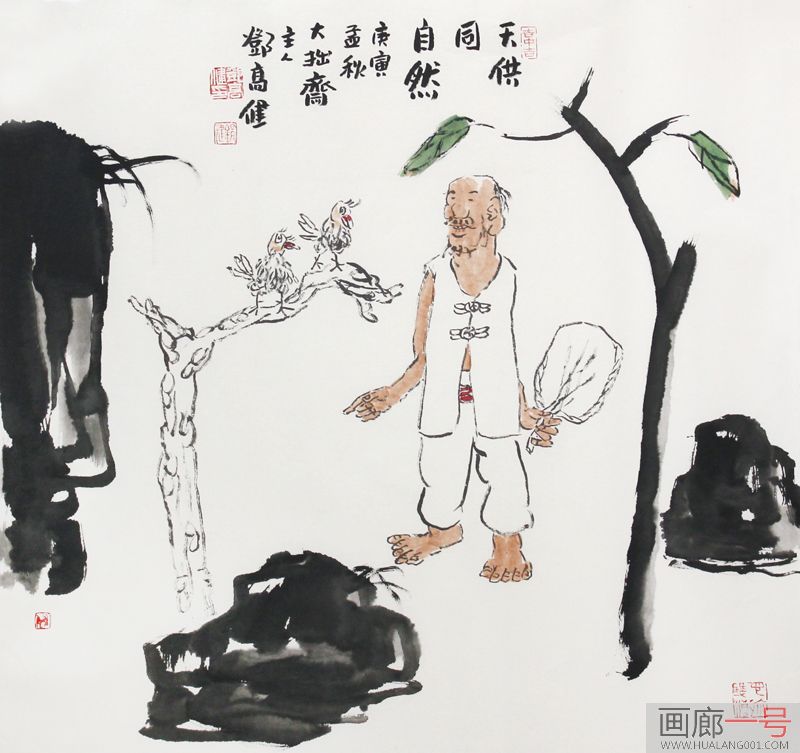 天供
同
自然
庚寅
孟秋
大拙齋
主人
鄧高健
画廊一号
WWW.HUALANG001.COM